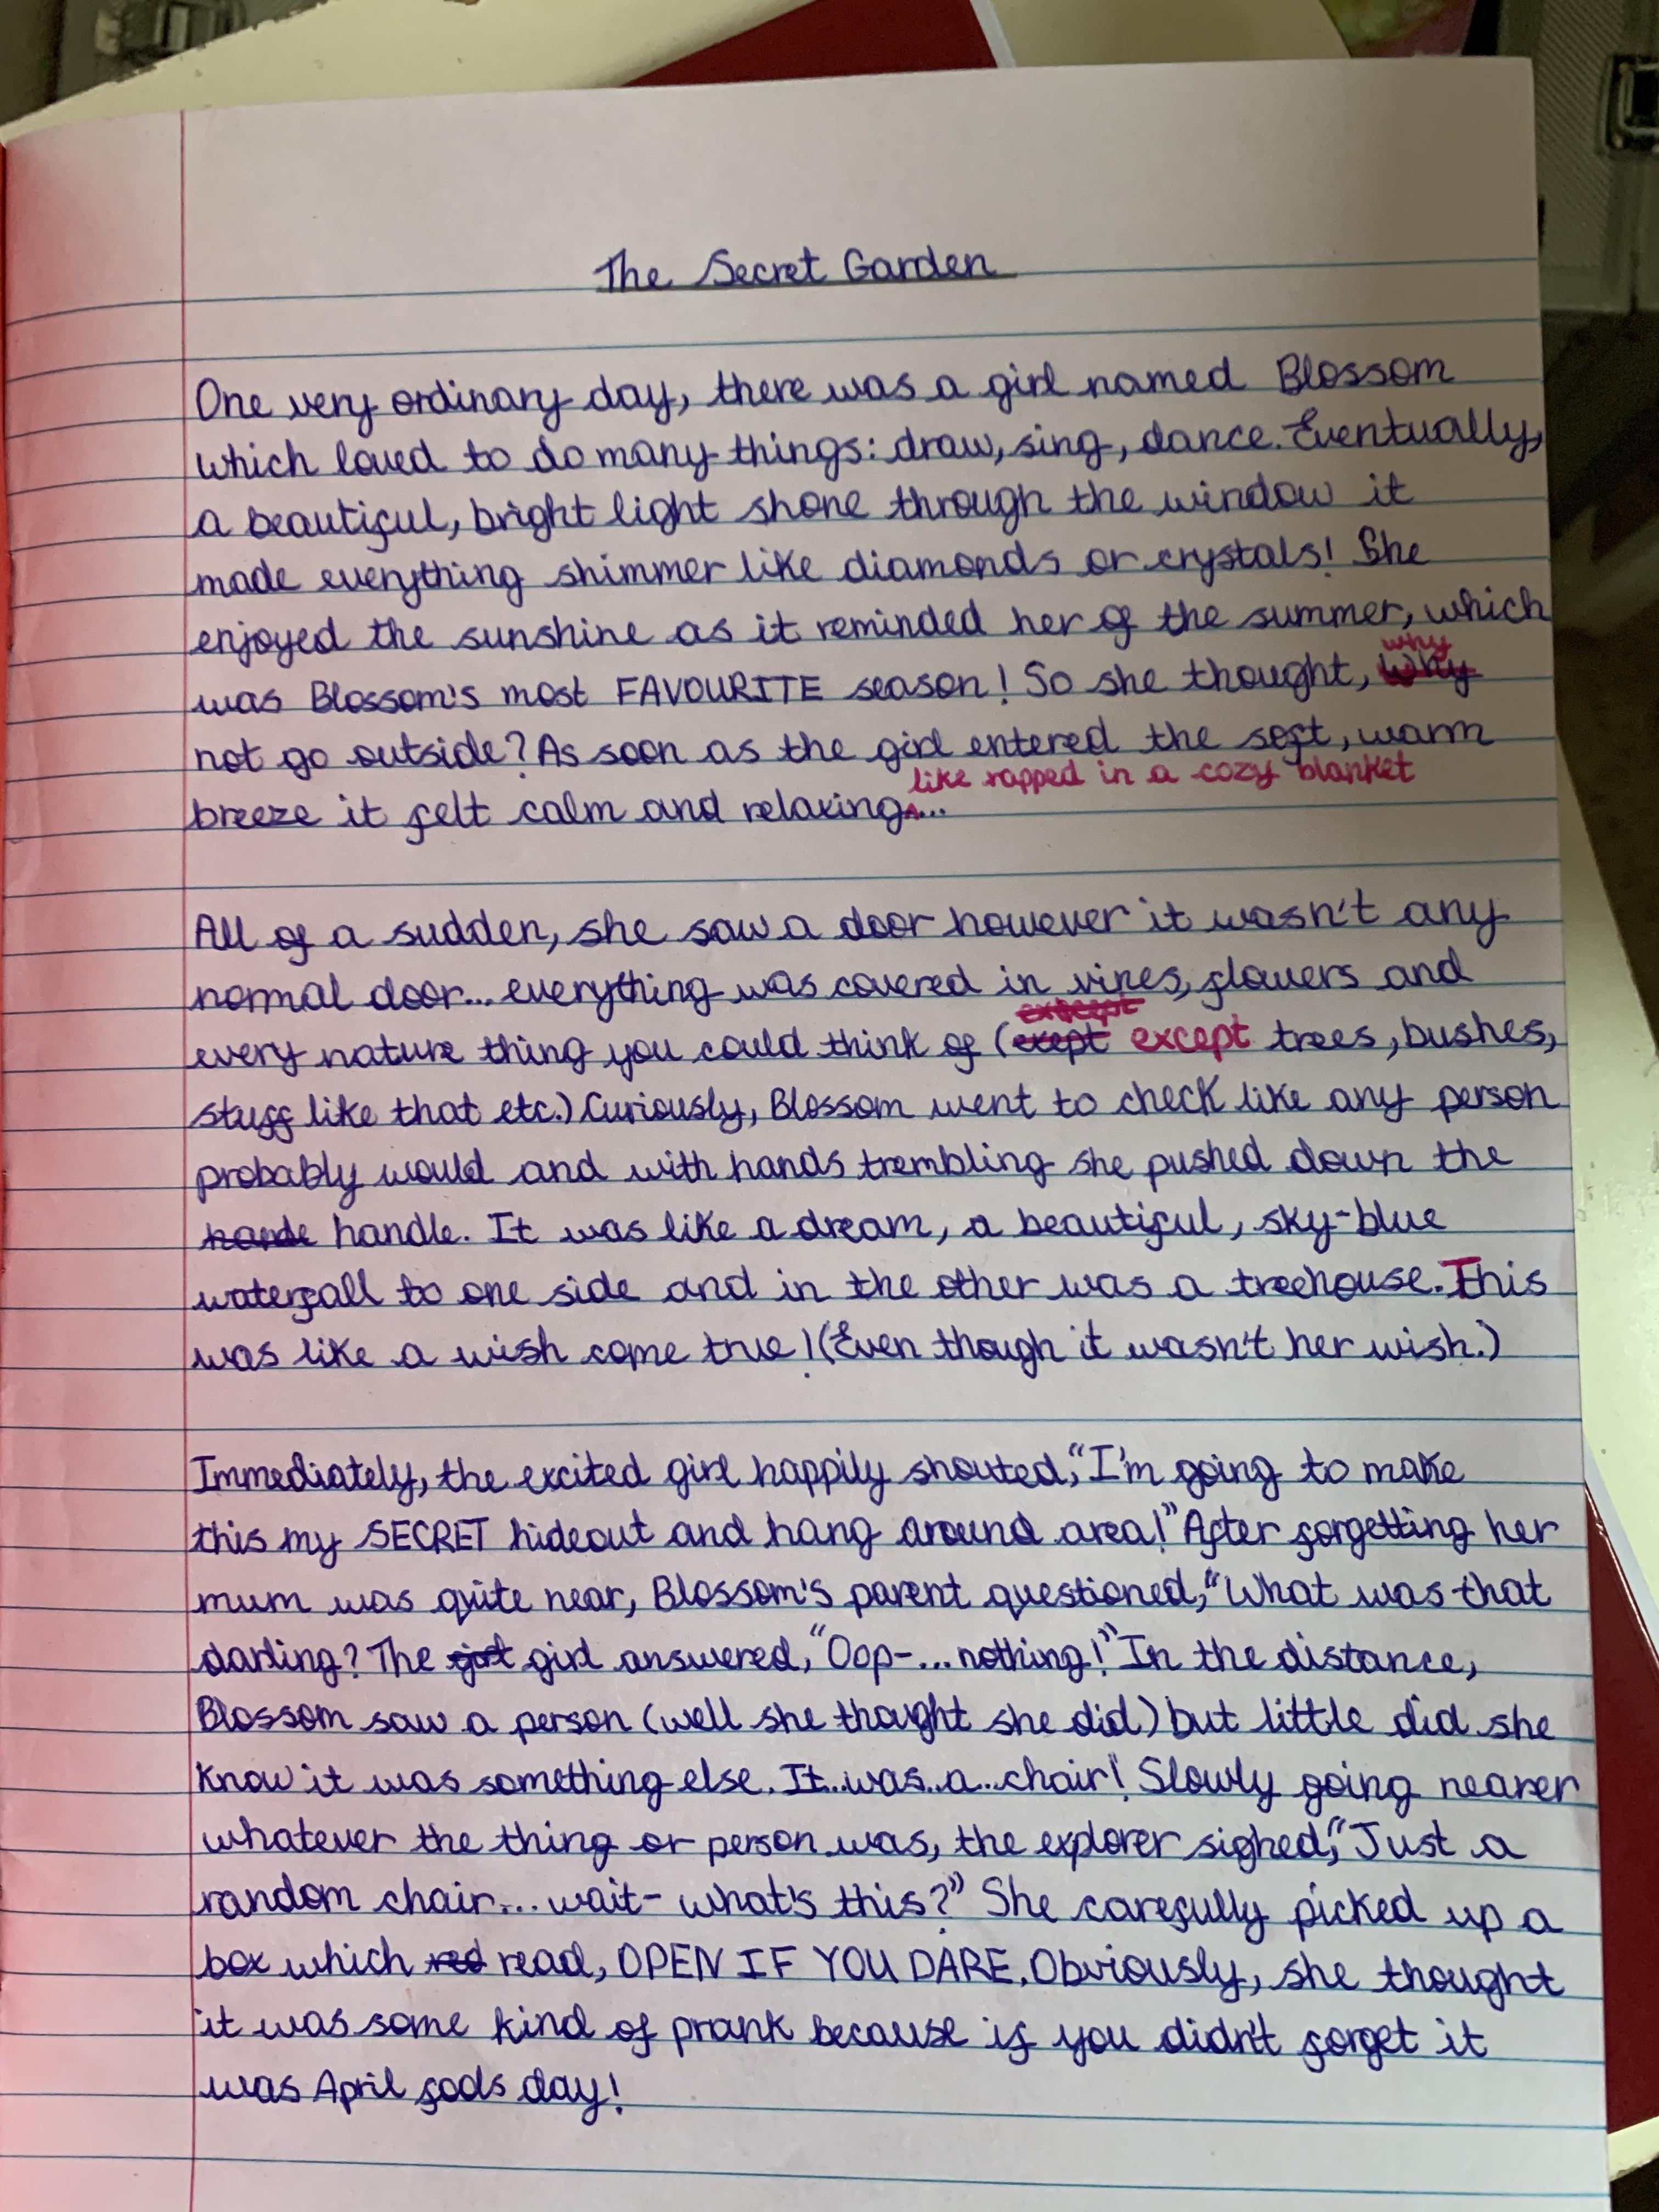 The Secret Garden
One very ordinary day, there was a girl named Blossom
which loved to do many things: draw, sing, dance. Eventually,
a beautiful, bright light shone through the window it
made everything shimmer like diamonds or crystals! She
enjoyed the sunshine as it reminded her of the summer, which
why
was Blossom's most FAVOURITE season! So she thought, Why
not go outside? As soon as the girl entered the soft, warm
like rapped in a cozy blanket
breeze it felt calm and relaxing...
All of a sudden, she saw a door however it wasn't any
normal door... everything was covered in vines, flowers and
every nature thing you could think of (exept except trees, bushes,
stuff like that etc.) Curiously, Blossom went to check like any person
probably would and with hands trembling she pushed down the
handle. It was like a dream, a beautiful, sky-blue
waterfall to one side and in the other was a treehouse. This
was like a wish come true! (Even though it wasn't her wish.)
Immediately, the excited girl happily shouted, "I'm going to make
this my SECRET hideout and hang around area!" After forgetting her
mum was quite near, Blossom's parent questioned, "What was that
darling? The girl answered, "Oop-... nothing!" In the distance,
Blossom saw a person (well she thought she did) but little did she
know it was something else. It..was..a..chair! Slowly going nearer
whatever the thing or person was, the explorer sighed, "Just a
random chair... wait- what's this?" She carefully picked up a
box which red read, OPEN IF YOU DARE. Obviously, she thought
it was some kind of prank because if you didn't forget it
was April fools day!